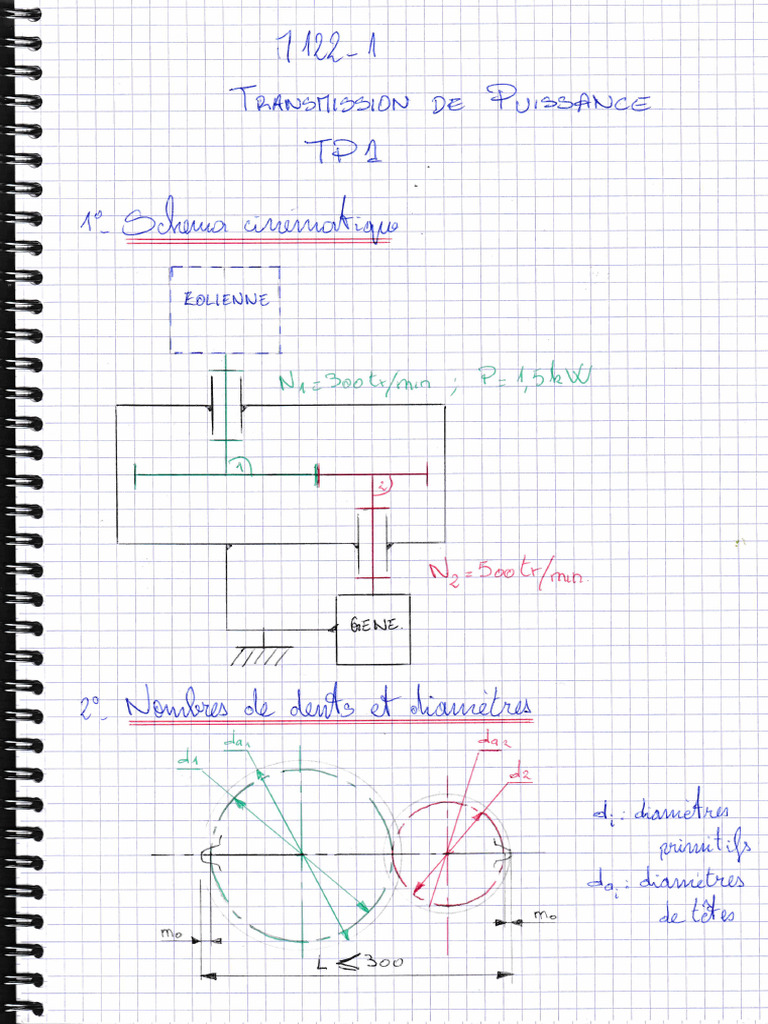 1122-1
TRANSMISSION DE PUISSANCE
TP1
1°- Schema cinématique
EOLIENNE
N1=300tr/min ; P=1,5kW
1
2
N2=500tr/min.
GENE.
2°- Nombres de dents et diamètres
da1
da2
d1
d2
di : diamètres
primitifs
dai : diamètres
de têtes
mo
mo
L ≤ 300